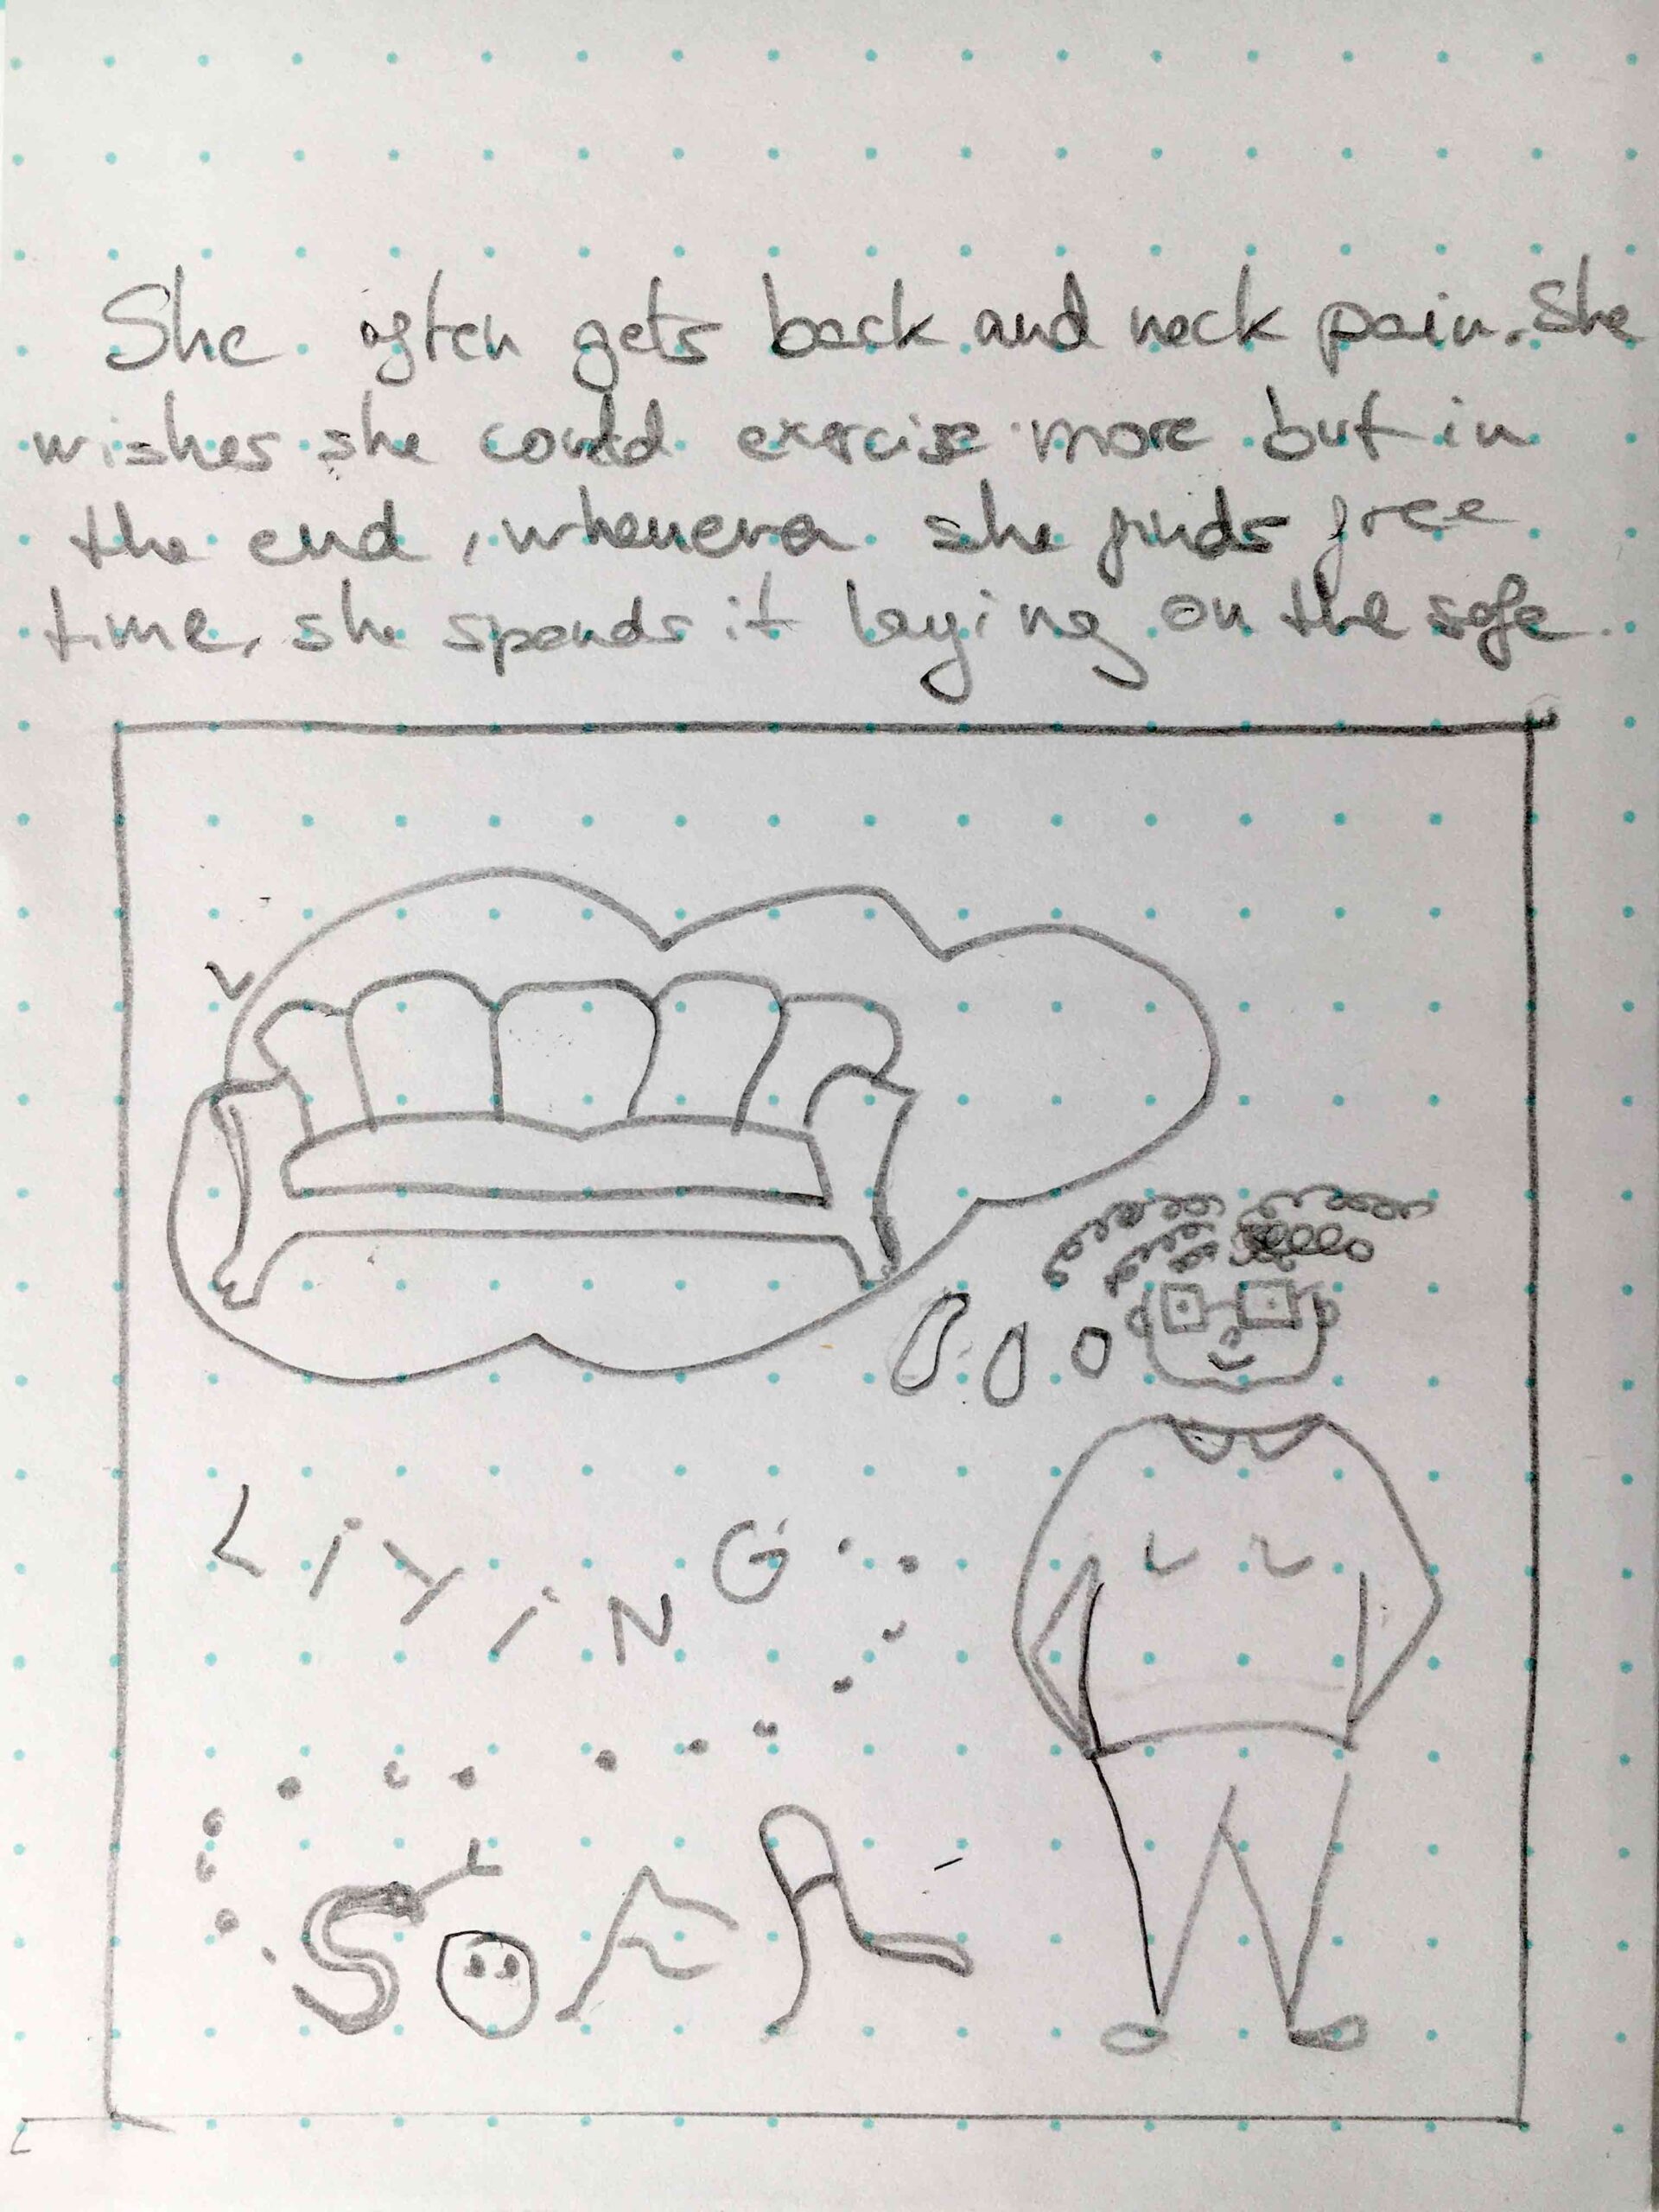 She often gets back and neck pain. She
wishes she could exercise more but in
the end, whenever she finds free
time, she spends it laying on the sofa.
LiYiNG
SOFA